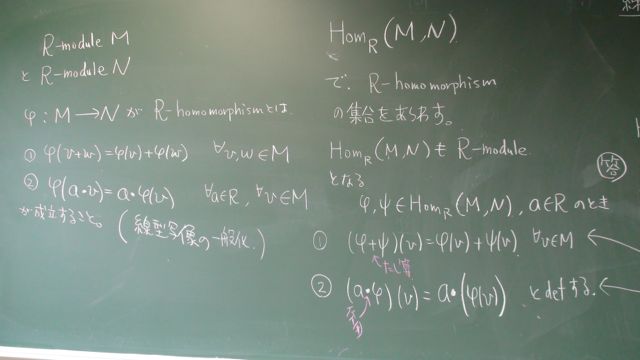 R-module M
と R-module N
φ : M → N が R-homomorphismとは
① φ(v+w) = φ(v)+φ(w) ∀v,w∈M
② φ(a・v) = a・φ(v) ∀a∈R, ∀v∈M
が成立すること。(線型写像の一般化)
Hom_R(M,N)
で R-homomorphism
の集合をあらわす。
Hom_R(M,N) も R-module
となる
φ,ψ∈Hom_R(M,N), a∈R のとき
① (φ+ψ)(v) = φ(v)+ψ(v) ∀v∈M
たし算
② (a・φ)(v) = a・(φ(v)) とdefする.
答